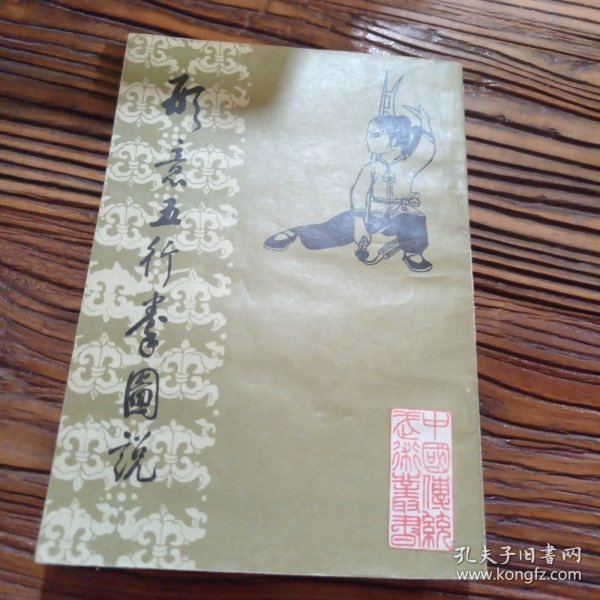 形意五行拳圖説
中國傳統
武術叢書
孔夫子旧书网
www.kongfz.com